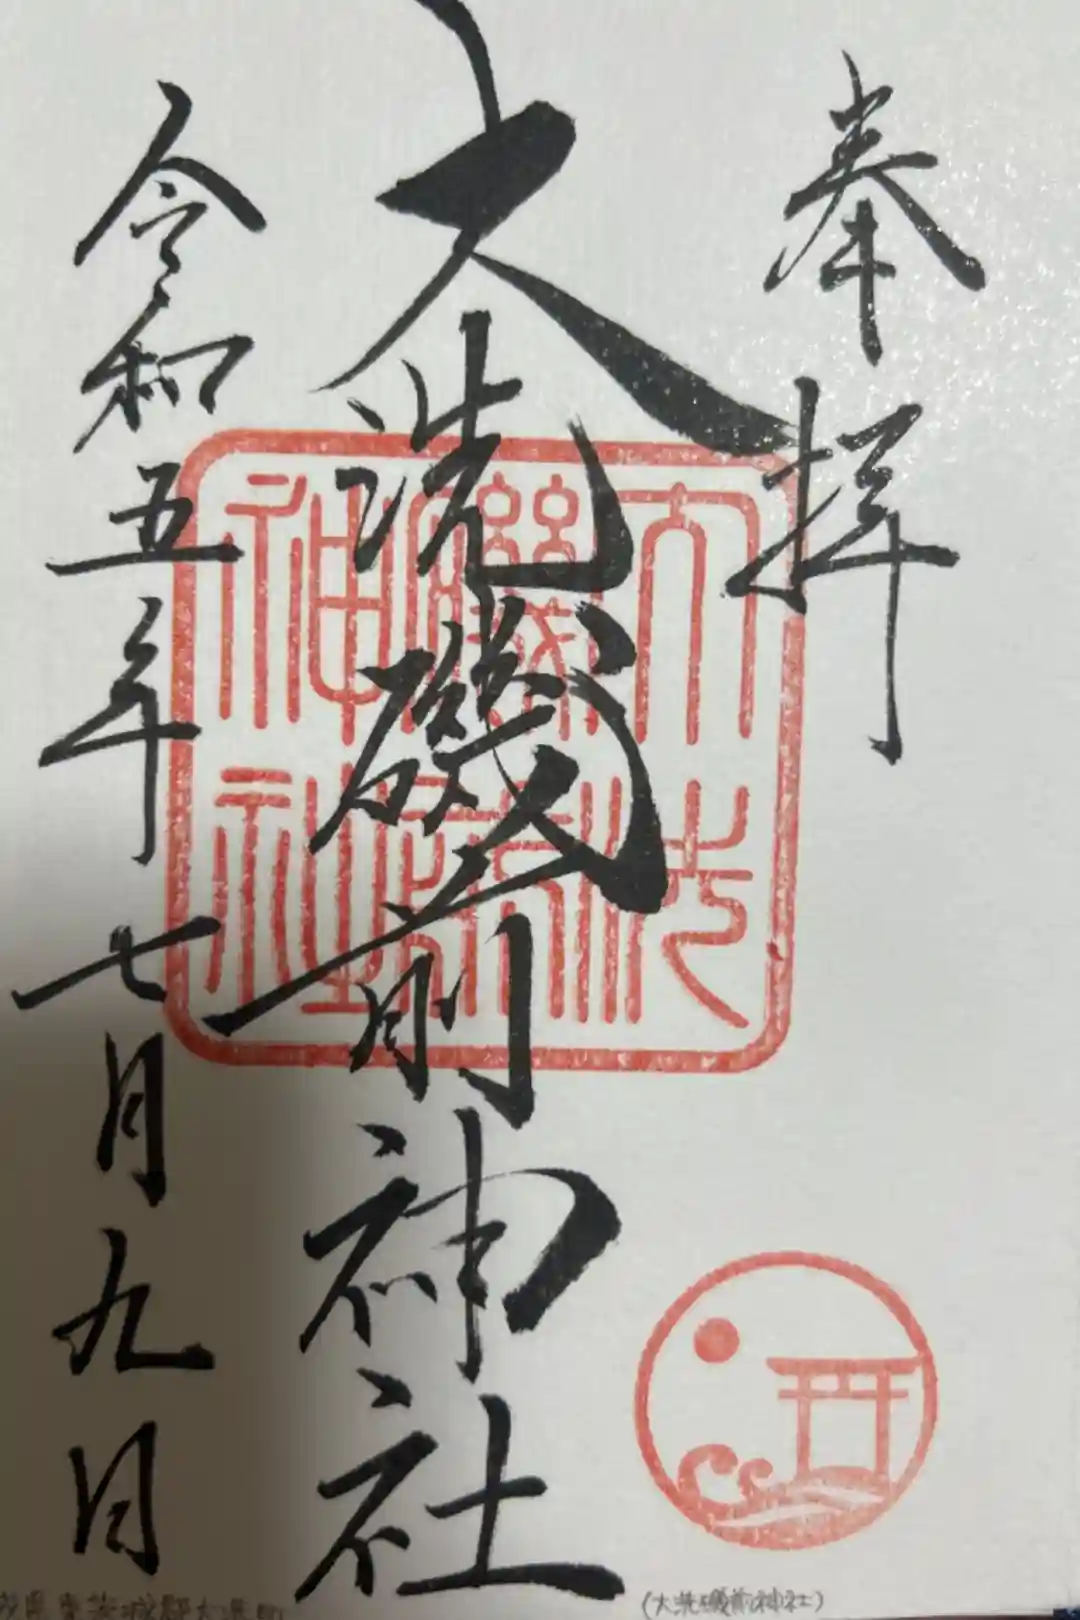 奉拝
大洗磯前神社
令和五年七月九日
大洗磯前神社
(大洗磯前神社)